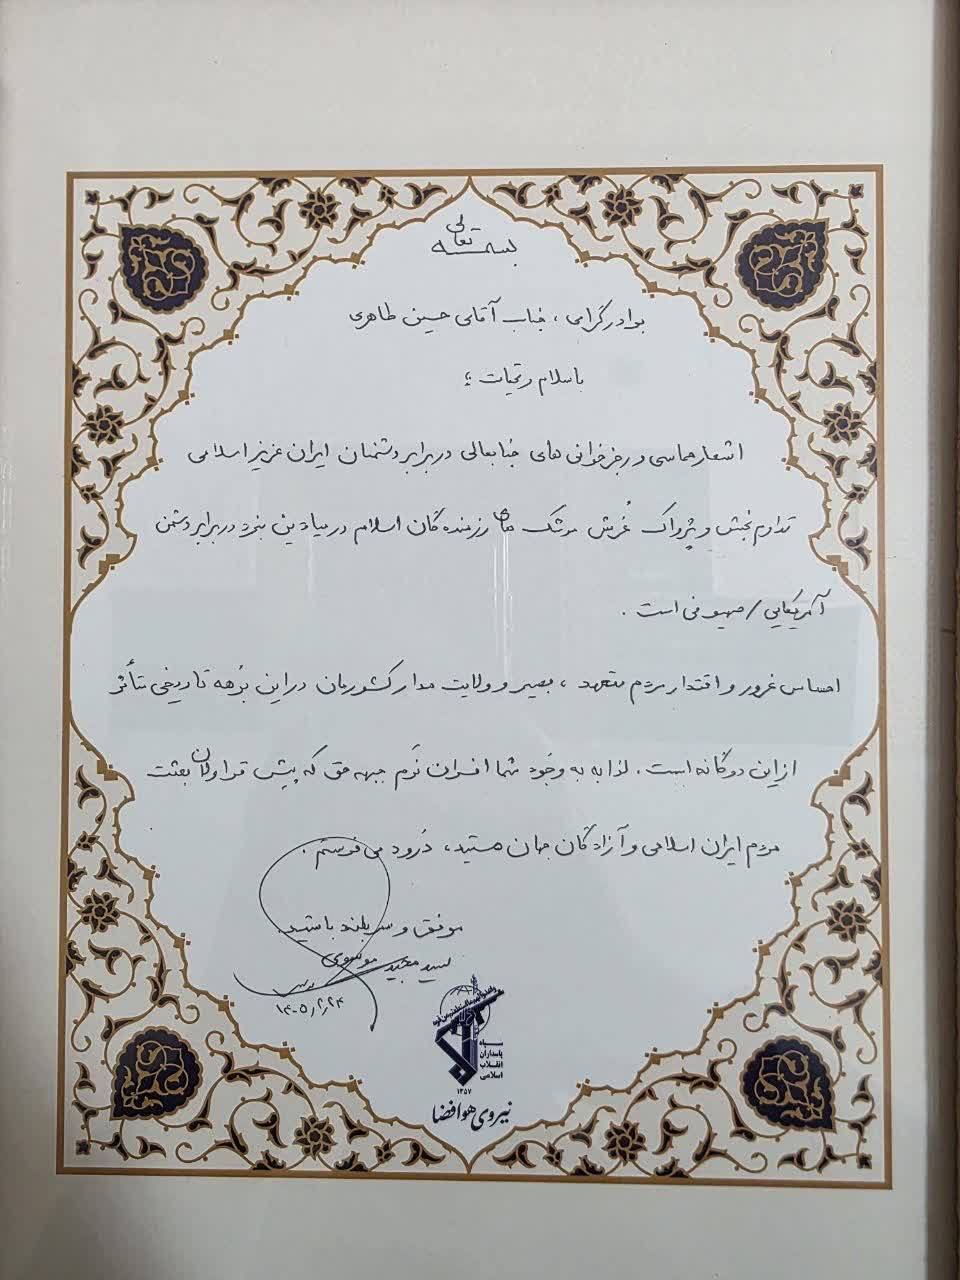 بسمه تعالی
برادر گرامی، جناب آقای حسین طاهری
با سلام و تحیات؛
اشعار حماسی و رجزخوانی های جنابعالی در برابر دشمنان ایران عزیز اسلامی
تداوم بخش و پژواک غُرش موشک های رزمنده گان اسلام در میادین نبرد در برابر دشمن
آمریکایی/صهیونی است.
احساس غرور و اقتدار مردم متعهد، بصیر و ولایت مدار کشورمان در این بُرهه تاریخی متأثر
از این دوگانه است. لذا به به وجُود شما افسران نَرم جبهه حق که پیش قراولان بعثت
مردم ایران اسلامی و آزادگان جهان هستید، دُرود می فرستم.
موفق و سربلند باشید.
سید مجید موسوی
۱۴۰۵/۲/۲۴
سپاه
پاسداران
انقلاب
اسلامی
۱۳۵۷
نیروی هوافضا